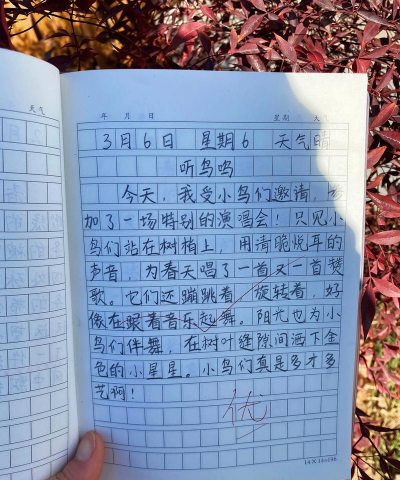 天气
年 月 日 星期 天气
3月6日 星期6 天气晴
听鸟鸣
今天，我受小鸟们邀请，参
加了一场特别的演唱会！只见小
鸟们站在树梢上，用清脆悦耳的
声音，为春天唱了一首又一首赞
歌。它们还蹦跳着，旋转着，好
像在跟着音乐起舞。阳光也为小
鸟们伴舞，在树叶缝隙间洒下金
色的小星星。小鸟们真是多才多
艺啊！
优